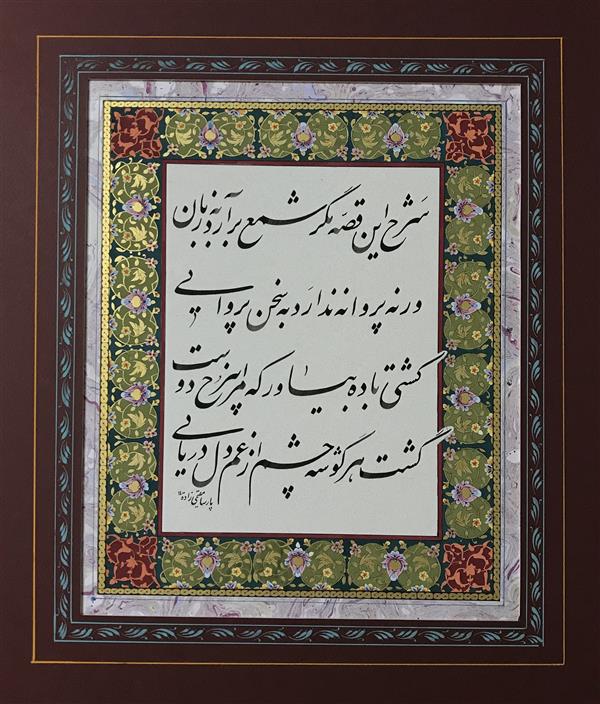 شرح این قصّه مگر شمع برآرد به زبان
ورنه پروانه ندارد به سخن پروایی
کشتی باده بیاور که مرا بی رخ دوست
گشت هر گوشه چشم از غم دل دریایی
پارسا مفتی زاده